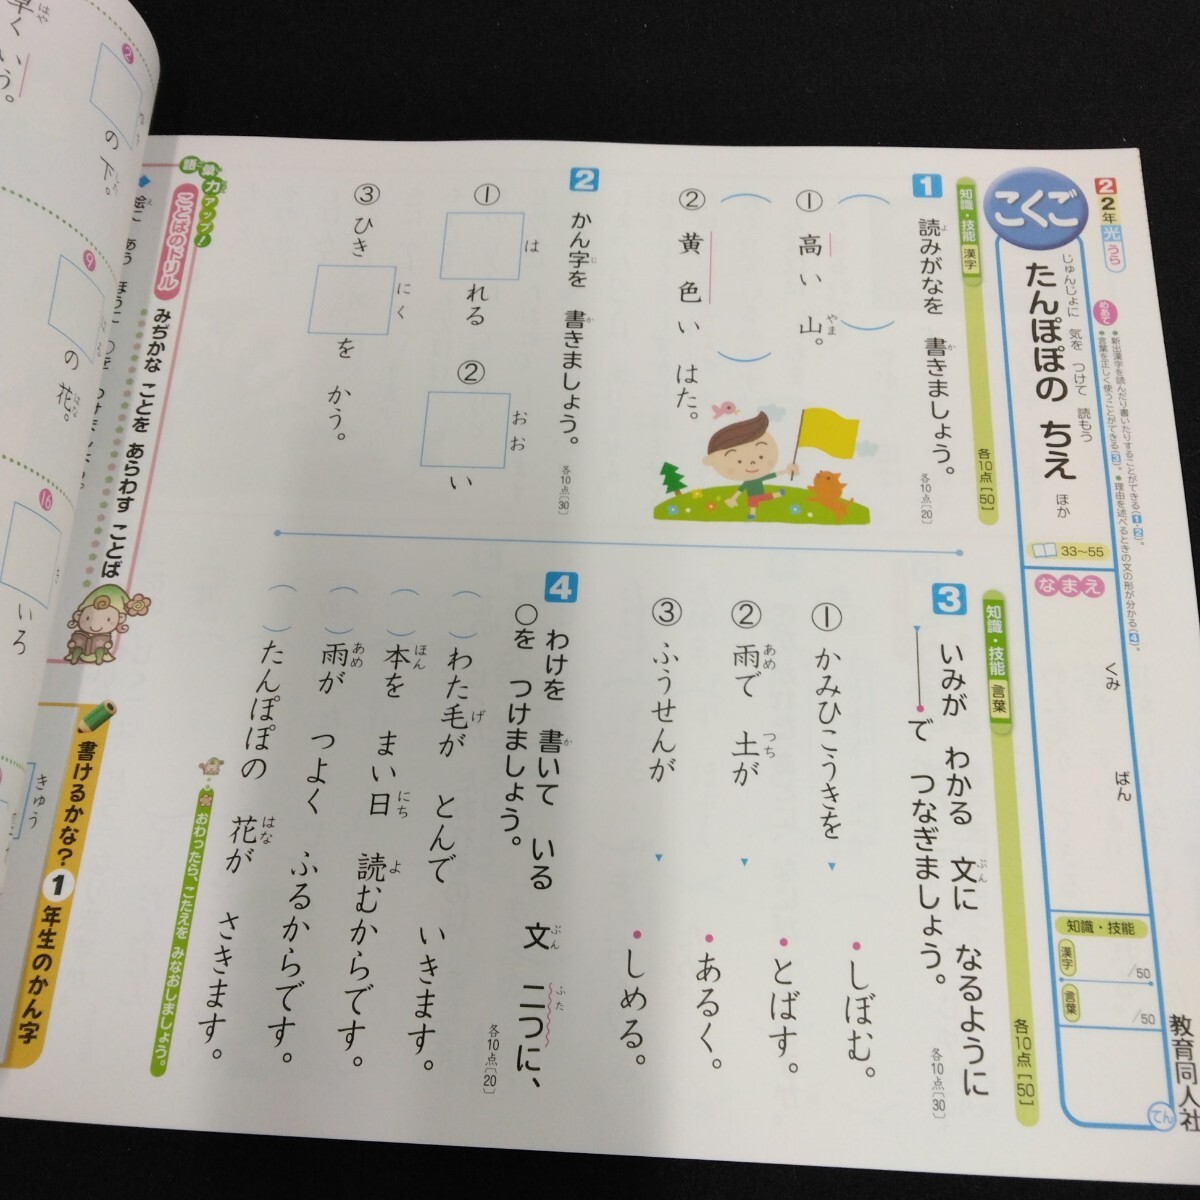 2 2年 光 うら
めあて
●新出漢字を読んだり書いたりすることができる(1・2)。
●言葉を正しく使うことができる(3)。●理由を述べるときの文の形が分かる(4)。
こくご
じゅんじょに 気を つけて 読もう
たんぽぽの ちえ ほか
33〜55
なまえ
くみ
ばん
知識・技能
漢字 /50
言葉 /50
てん
教育同人社
知識・技能 漢字 各10点[50]
1 読みがなを 書きましょう。 各10点[20]
よ
か
① 高い 山。
やま
② 黄色い はた。
2 かん字を 書きましょう。 各10点[30]
じ
か
① れる
は
② い
おお
③ ひき を かう。
にく
知識・技能 言葉 各10点[50]
3 いみが わかる 文に なるように
ぶん
で つなぎましょう。 各10点[30]
① かみひこうきを
② 雨で 土が
あめ
つち
③ ふうせんが
しぼむ。
とばす。
あるく。
しめる。
4 わけを 書いて いる 文 二つに、
か
ぶん
ふた
○を つけましょう。 各10点[20]
( ) わた毛が とんで いきます。
げ
( ) 本を まい日 読むからです。
ほん
にち
よ
( ) 雨が つよく ふるからです。
あめ
( ) たんぽぽの 花が さきます。
はな
おわったら、こたえを みなおしましょう。
語彙力アップ!
ことばのドリル
みぢかな ことを あらわす ことば
書けるかな? 1年生のかん字
早く
はや
う。
2
の 下。
した
9
の 花。
はな
16
いろ
きゅう